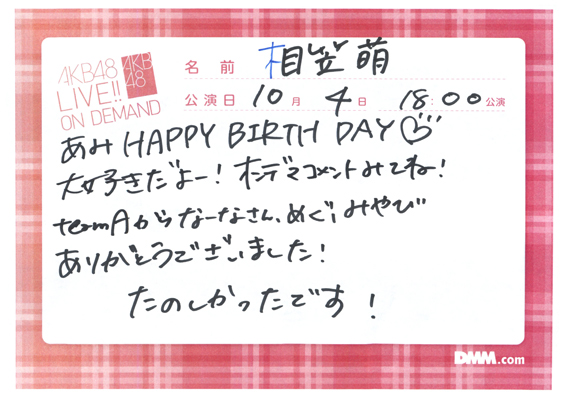 AKB48
LIVE!!
ON DEMAND
AKB
48
名前 相笠萌
公演日 10月 4日 18:00公演
あみ HAPPY BIRTH DAY
大好きだよー! オンデマコメントみてね!
teamAからなーなさん、めぐ、みやび
ありがとうございました!
たのしかったです!
DMM.com